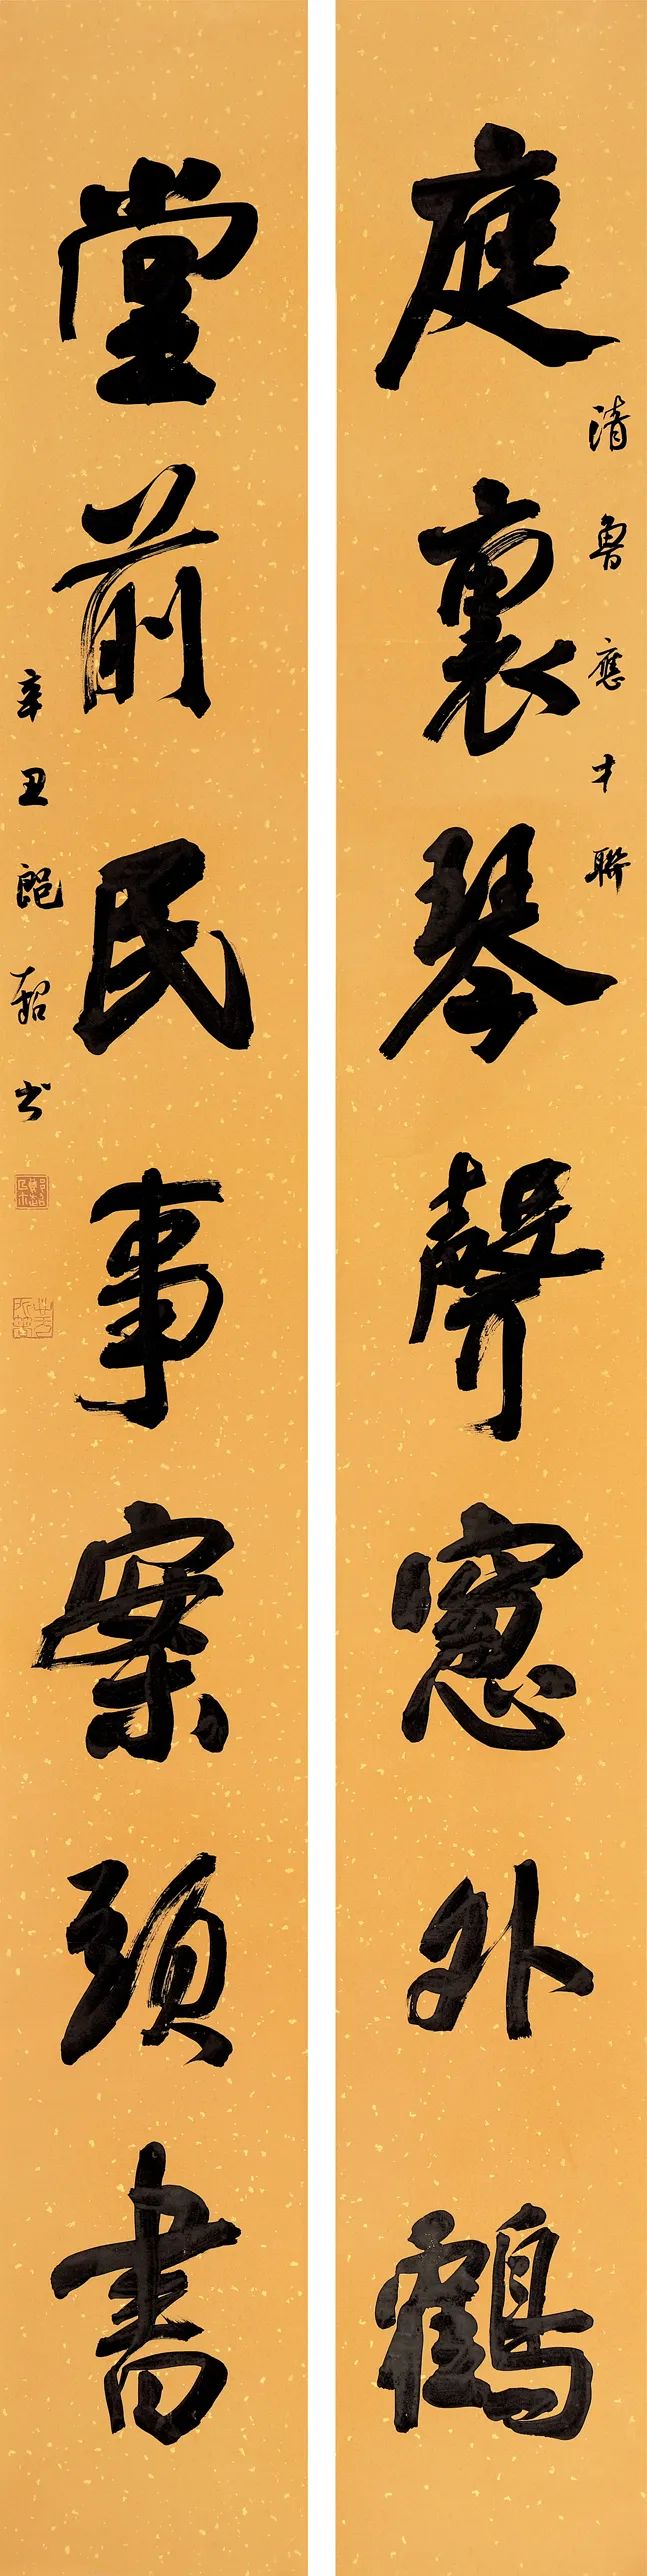 庭裏琴聲窗外鶴
清魯應才聯
堂前民事案頭書
辛丑 韜书